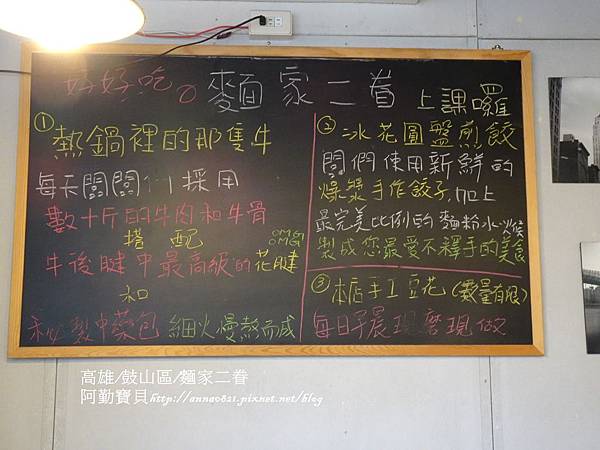 好好吃。麵家二眷 上課囉
① 熱鍋裡的那隻牛
每天闆闆們採用
數十斤的牛肉和牛骨
搭配 OMG!
牛後腱中最高級的花腱
和
秘製中藥包 細火慢熬而成
② 冰花圓盤煎餃
闆們使用新鮮的
爆漿手作餃子,加上
最完美比例的麵粉水
製成您最愛不釋手的美食
③ 本店手工豆花(數量有限)
每日早晨現磨現做
高雄/鼓山區/麵家二眷
阿勤寶貝http://anna0821.pixnet.net/blog